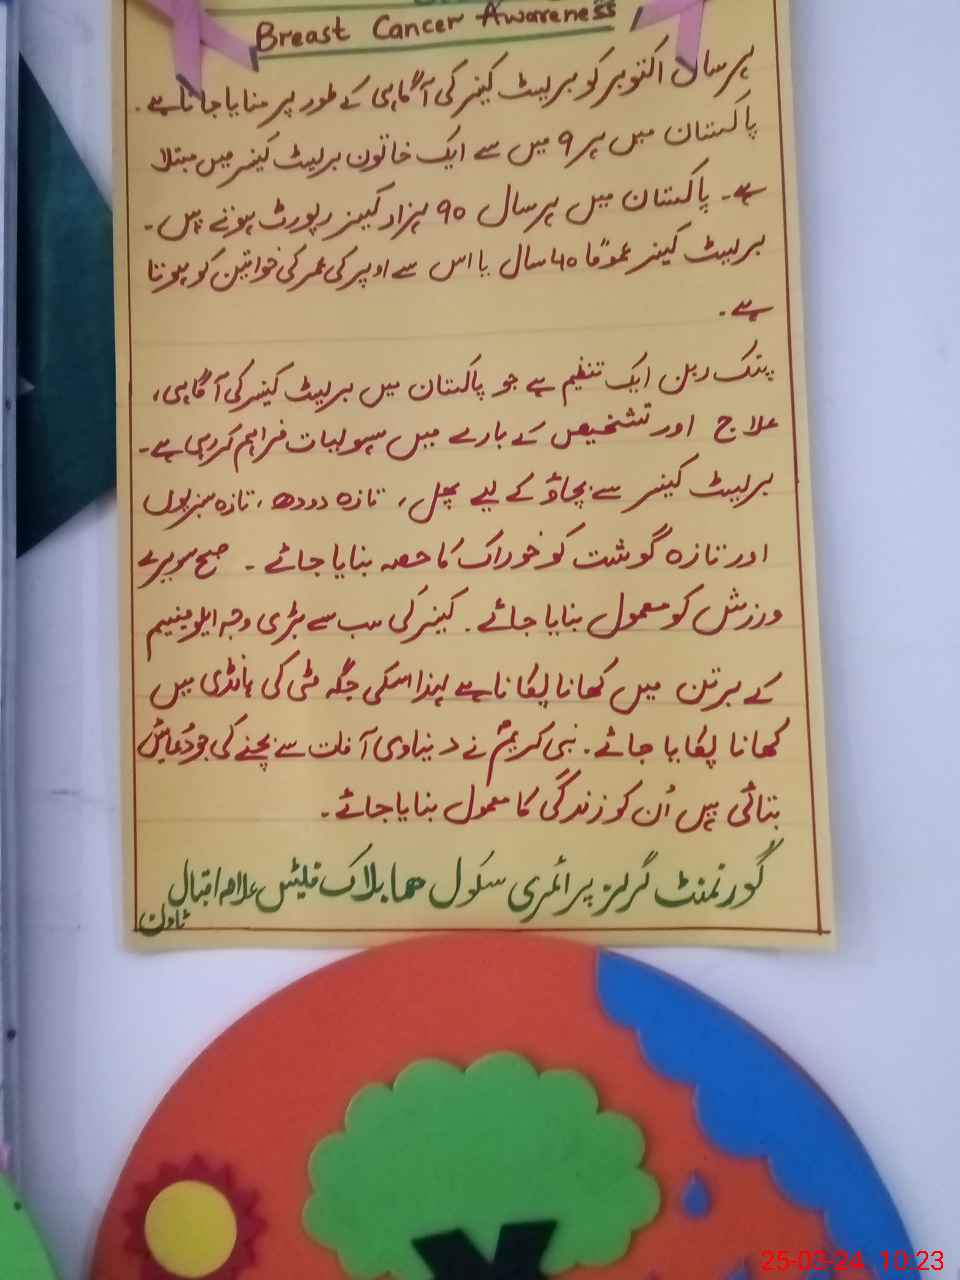 Breast Cancer Awareness
ہر سال اکتوبر کو بریسٹ کینسر کی آگاہی کے طور پر منایا جاتا ہے۔
پاکستان میں ہر 9 میں سے ایک خاتون بریسٹ کینسر میں مبتلا
ہے۔ پاکستان میں ہر سال 90 ہزار کیسز رپورٹ ہوتے ہیں۔
بریسٹ کینسر عموماً 40 سال یا اس سے اوپر کی عمر کی خواتین کو ہوتا
ہے۔
پنک ربن ایک تنظیم ہے جو پاکستان میں بریسٹ کینسر کی آگاہی،
علاج اور تشخیص کے بارے میں سہولیات فراہم کر رہی ہے۔
بریسٹ کینسر سے بچاؤ کے لیے پھل، تازہ دودھ، تازہ سبزیوں
اور تازہ گوشت کو خوراک کا حصہ بنایا جائے۔ صبح سویرے
ورزش کو معمول بنایا جائے۔ کینسر کی سب سے بڑی وجہ ایلومینیم
کے برتن میں کھانا پکانا ہے لہذا اسکی جگہ مٹی کی ہانڈی میں
کھانا پکایا جائے۔ نبی کریمؐ نے دنیاوی آفات سے بچنے کی جو دُعائیں
بتائی ہیں اُن کو زندگی کا معمول بنایا جائے۔
گورنمنٹ گرلز پرائمری سکول ھما بلاک فلیٹس علامہ اقبال
ٹاون
25-03-24 10:23